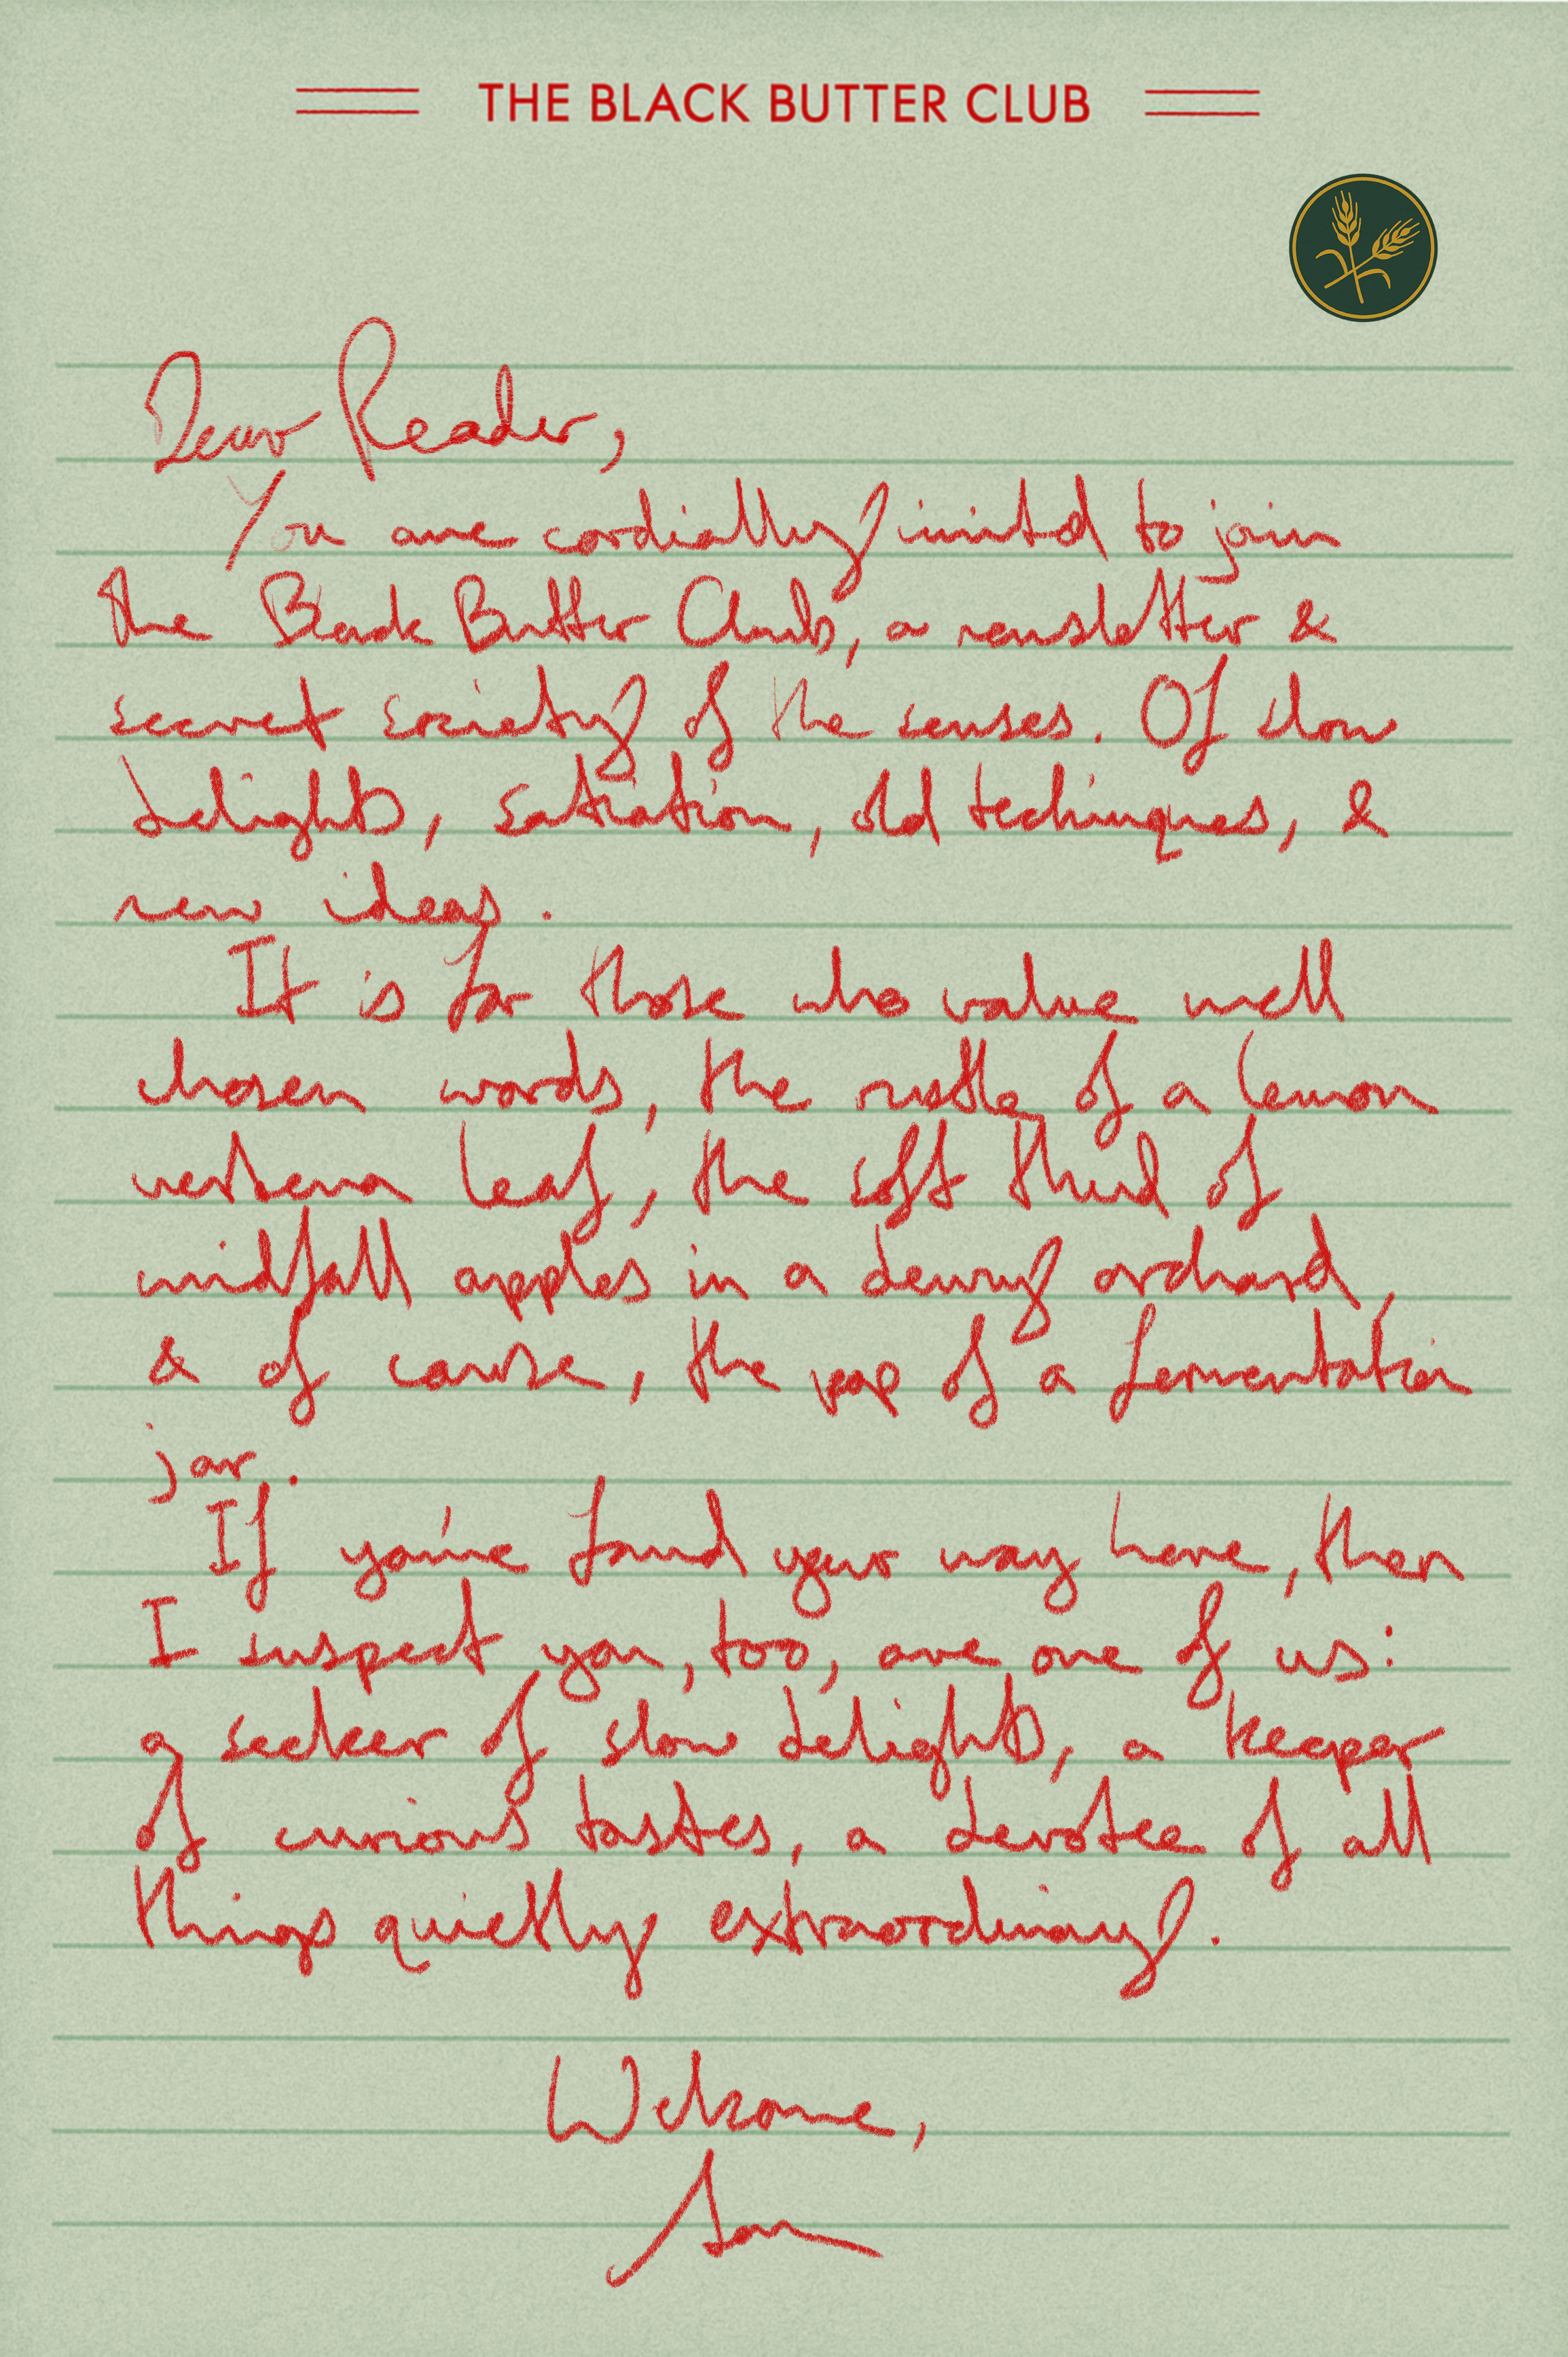 THE BLACK BUTTER CLUB
Dear Reader,
You are cordially invited to join
the Black Butter Club, a newsletter &
secret society of the senses. Of slow
delights, satiation, old techniques, &
new ideas.
It is for those who value well
chosen words, the rustle of a lemon
verbena leaf, the soft thud of
windfall apples in a dewy orchard,
& of course, the pop of a fermentation
jar.
If you've found your way here, then
I suspect you, too, are one of us:
a seeker of slow delights, a keeper
of curious tastes, a devotee of all
things quietly extraordinary.
Welcome,